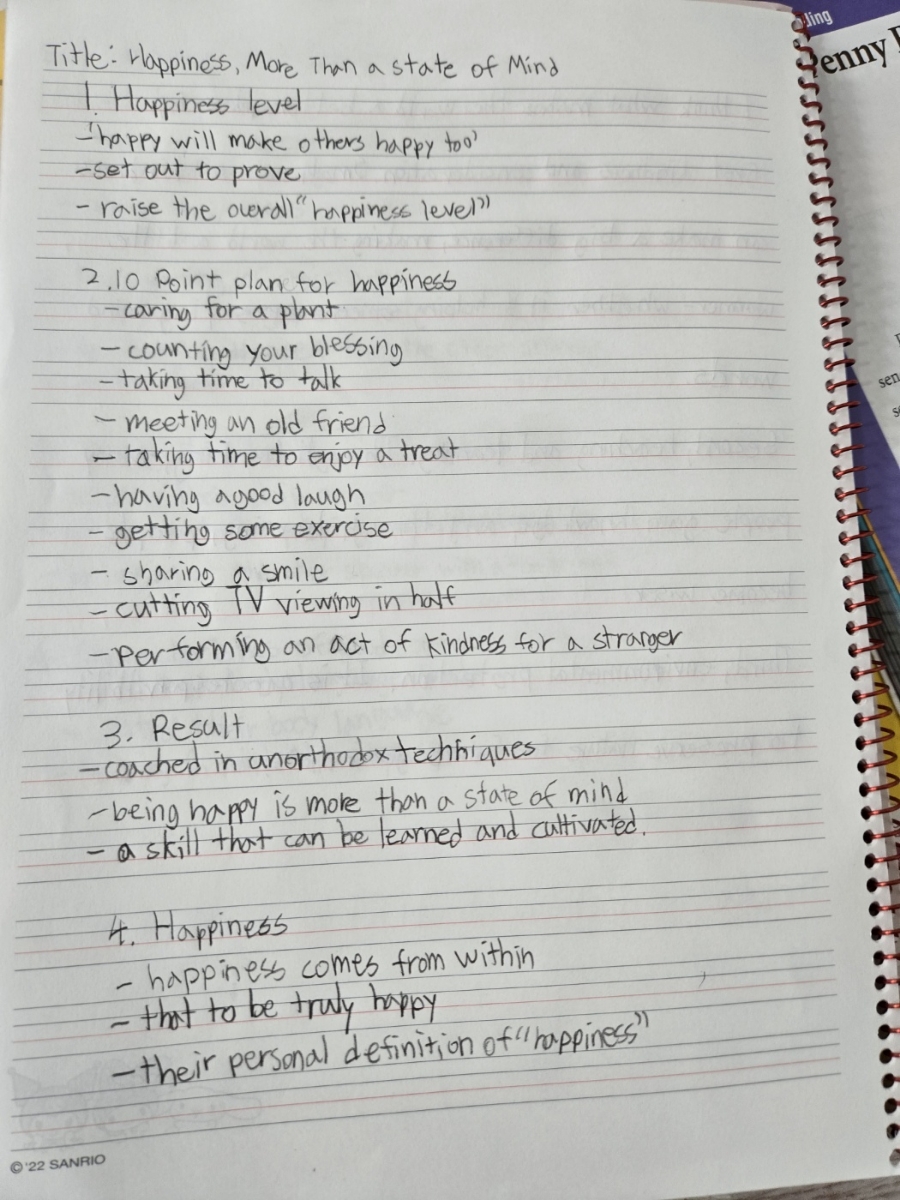 Title: Happiness, More Than a state of Mind
1 Happiness level
-'happy will make others happy too'
-set out to prove
- raise the overall "happiness level"
2.10 Point plan for happiness
-caring for a plant
- counting your blessing
-taking time to talk
- meeting an old friend
- taking time to enjoy a treat
-having a good laugh
- getting some exercise
- sharing a smile
- cutting TV viewing in half
-performing an act of kindness for a stranger
3. Result
-coached in unorthodox techniques
-being happy is more than a state of mind
- a skill that can be learned and cultivated.
4. Happiness
- happiness comes from within
- that to be truly happy
-their personal definition of "happiness"
© '22 SANRIO
ding
enny
sen